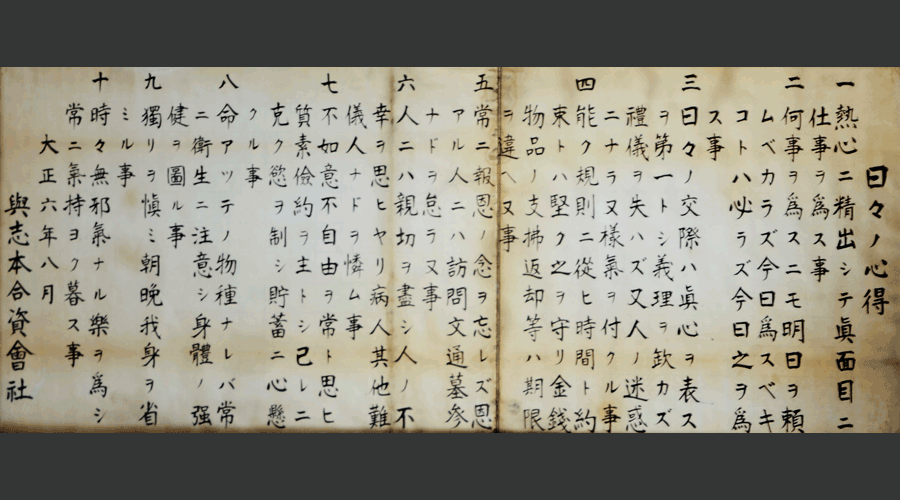 日々ノ心得
一熱心ニ精出シテ眞面目ニ
仕事ヲ為ス事
二何事ヲ為スニモ明日ヲ頼
ムベカラズ今日為スベキ
コトハ必ラズ今日之ヲ為
ス事
三日々ノ交際ハ眞心ヲ表ス
ヲ第一トシ義理ヲ欽カズ
禮儀ヲ失ハズ又人ノ迷惑
ニナラヌ樣氣ヲ付クル事
四能ク規則ニ從ヒ時間ト約
束トハ堅ク之ヲ守リ金錢
物品ノ支拂返却等ハ期限
ヲ違ヘヌ事
五常ニ報恩ノ念ヲ忘レズ恩
アル人ニハ訪問文通墓參
ナドヲ怠ラヌ事
六人ニハ親切ヲ盡シ人ノ不
幸ヲ思ヒヤリ病人其他難
儀人ナドヲ憐ム事
七不如意不自由ヲ常ト思ヒ
質素儉約ヲ主トシ己レニ
克ク慾ヲ制シ貯蓄ニ心懸
クル事
八命アツテノ物種ナレバ常
ニ衛生ニ注意シ身體ノ强
健ヲ圖ル事
九獨リヲ愼ミ朝晩我身ヲ省
ミル事
十時々無邪氣ナル樂ヲ為シ
常ニ氣持ヨク暮ス事
大正六年八月
與志本合資會社